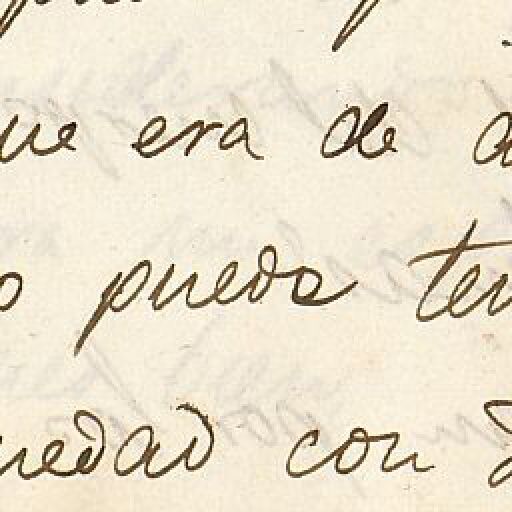 ue era de d
o pueda ten
uedad con d